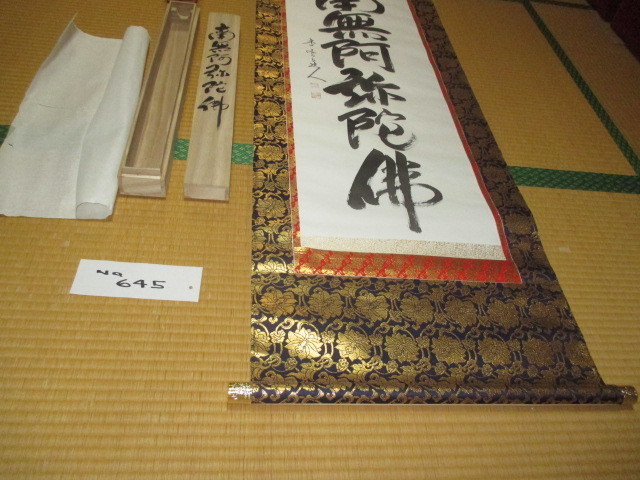 南無阿弥陀佛
南無阿弥陀佛
No
645